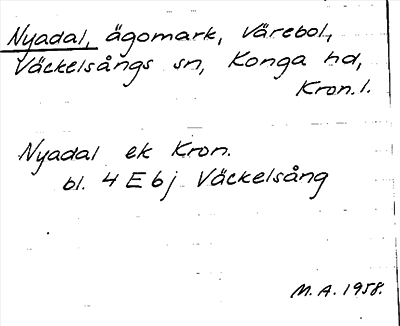 Nyadal, ägomark, Värebol,
Väckelsångs sn, Konga hd,
Kron. l.
Nyadal ek Kron.
bl. 4 E b j Väckelsång
M. A. 1958.